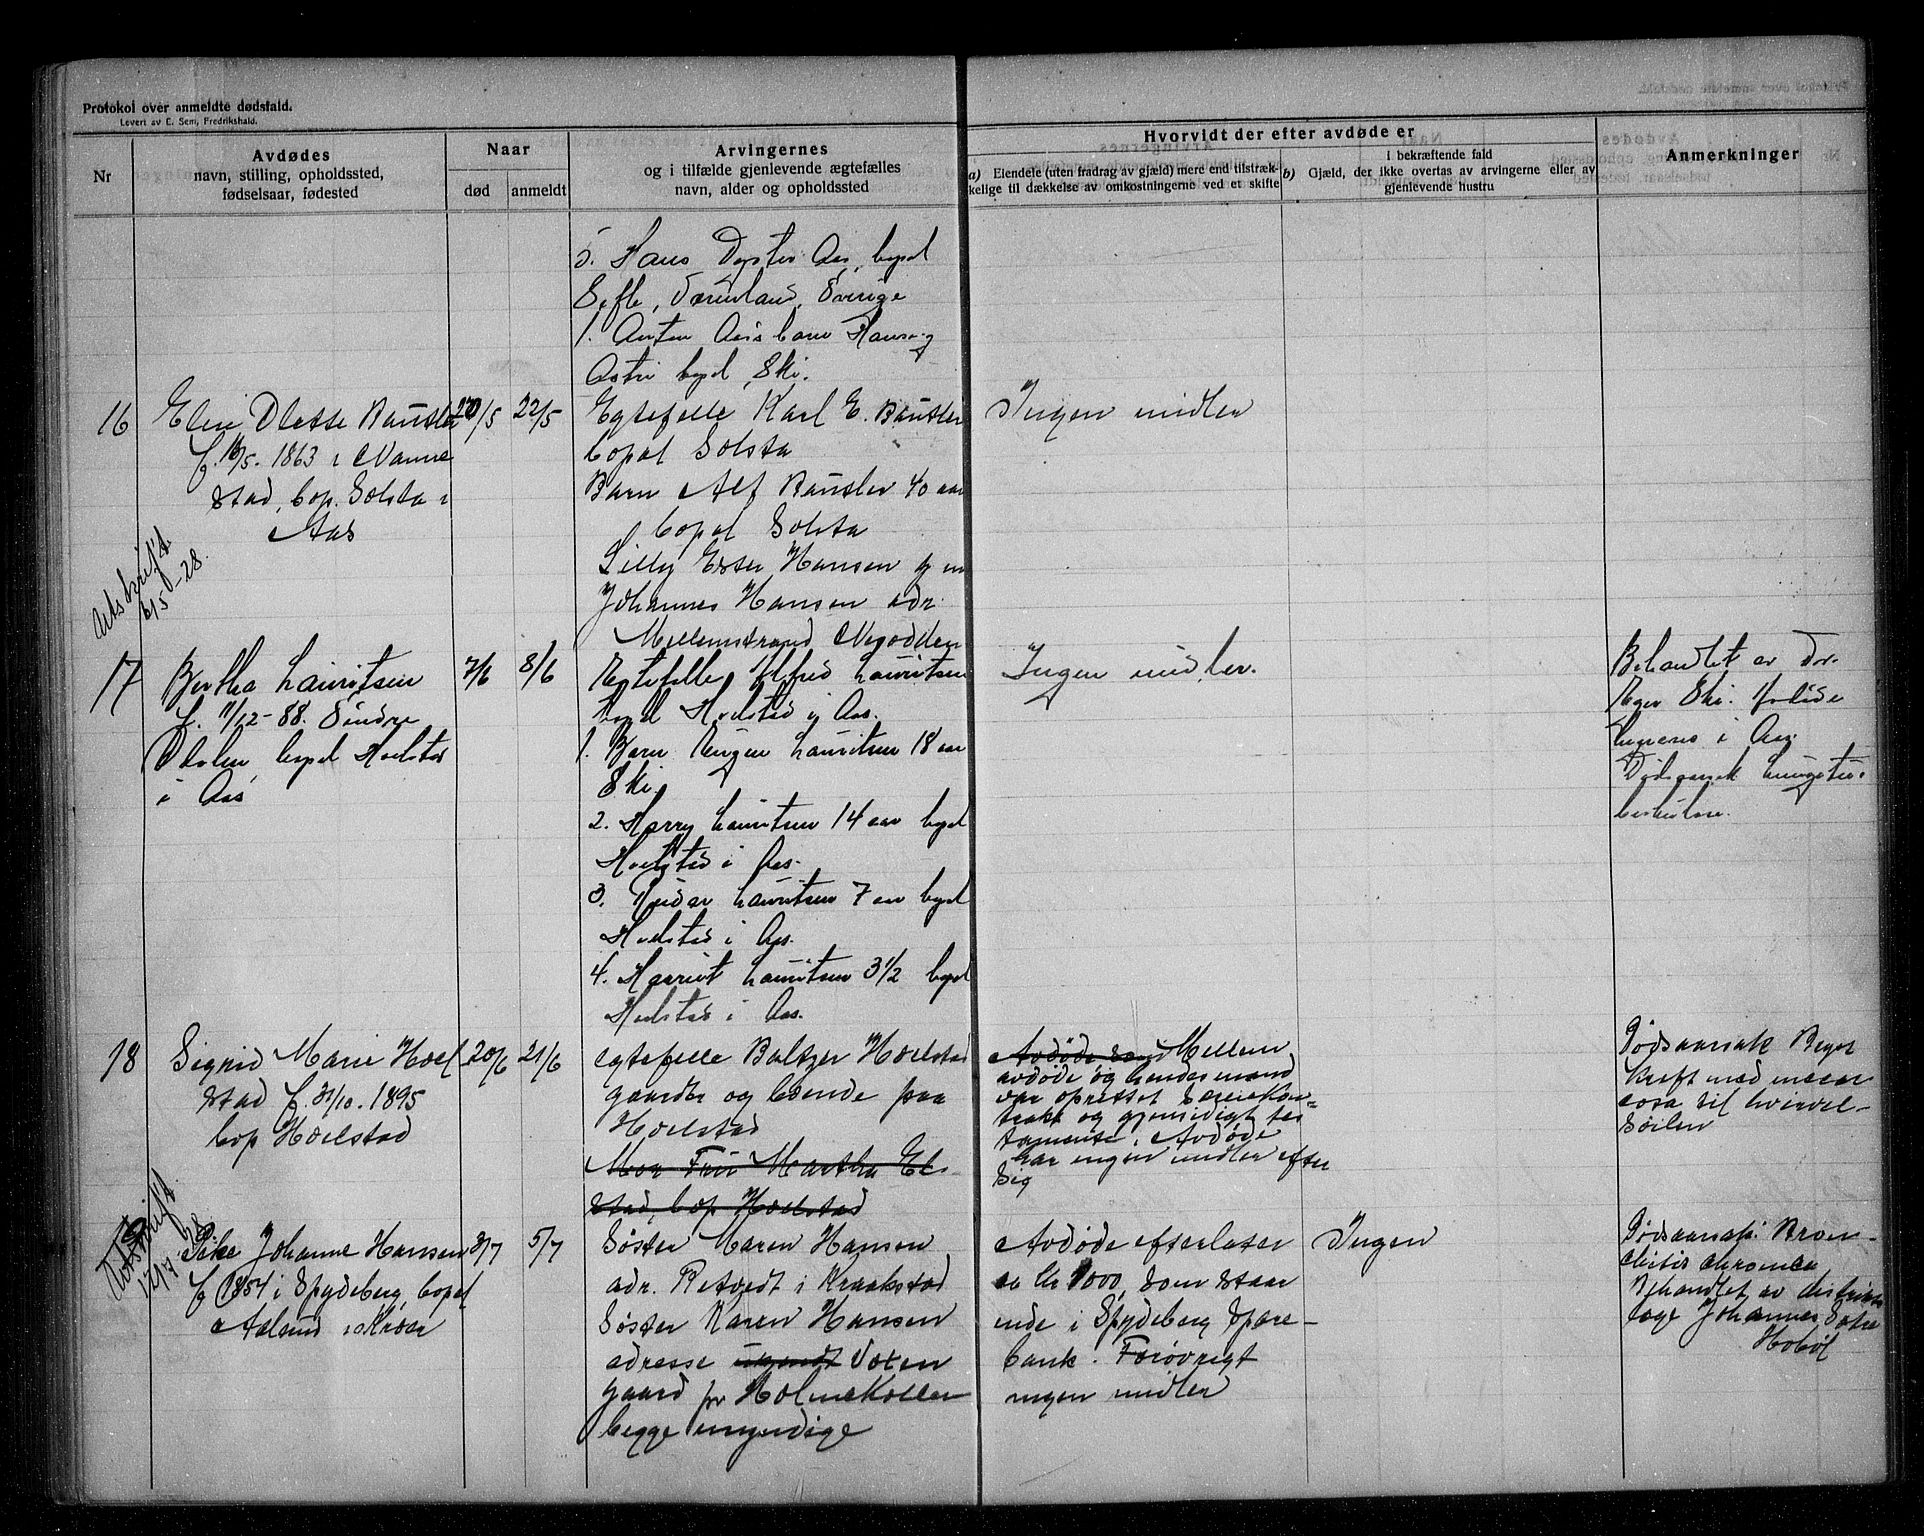 Protokol over anmeldte dødsfald.
Levert av E. Sem, Fredrikshald.
Nr
Avdødes
navn, stilling, opholdssted,
fødselsaar, fødested
Naar
død
anmeldt
Arvingernes
og i tilfælde gjenlevende ægtefælles
navn, alder og opholdssted
Hvorvidt der efter avdøde er
a) Eiendele (uten fradrag av gjæld) mere end tilstræk-
kelige til dækkelse av omkostningerne ved et skifte
b) i bekræftende fald
Gjæld, der ikke overtas av arvingerne eller av
gjenlevende hustru
Anmerkninger
5. Hans Aas, bopel
Sefle, Värmland, Sverige
1. Anton Aas barn Hans og
Astri bopel Ski.
16
f. 1863 i Vanne
stad, bop. Solsta i
Aas
20/5
22/5
Egtefelle Karl E.
bopel Solsta
Barn Alf 40 aar
bopel Solsta
Lilly Ester Hansen g m
Johannes Hansen adr.
Mellemstrand Nesodden
Ingen midler
Utskrift
6/5-28.
17
Bertha Lauritsen
f. 11/12-88. Søndre
bopel Hoelstad
i Aas
7/6
8/6
Egtefelle Alfred Lauritsen
bopel Hoelstad i Aas.
1. Barn Eugen Lauritsen 18 aar
Ski.
2. Harry Lauritsen 14 aar bopel
Hoelstad i Aas.
3. Reidar Lauritsen 7 aar bopel
Hoelstad i Aas.
4. Harriet Lauritsen 3 1/2 bopel
Hoelstad i Aas.
Ingen midler.
Behandlet av Dr.
Eger Ski.
i Aas.
Dødsaarsak lungetu-
berkulose.
18
Sigrid Marie Hoel
stad f. 31/10. 1895
bop Hoelstad
20/6
21/6
Egtefelle Baltzer Hoelstad
gaardbr og boende paa
Hoelstad
Mor Fru Martha El-
stad, bop Hoelstad
Avdøde Mellem
avdøde og hendes mand
var oprettet særeiekon=
trakt og gjensidigt tes
tamente. Avdøde
har ingen midler efter
sig
Dødsaarsak Bryst
kreft med
til hvirvel-
søilen
Utskrift
12/7. 28
Johanne Hansen
f 1854 i Spydeberg, bopel
Aalund i Kroer
3/7
5/7
Søster Maren Hansen
adr. Retvedt i Kraakstad
Søster Karen Hansen
adresse ukjendt Voxen
gaard pr Holmekollen
begge umyndige
Avdøde efterlater
ca kr 1000, som staar
inde i Spydeberg Spare-
bank. Forøvrigt
ingen midler
Ingen
Dødsaarsak: Bron-
chitis chronica
Behandlet av distrikts
læge Johannes
Hobøl